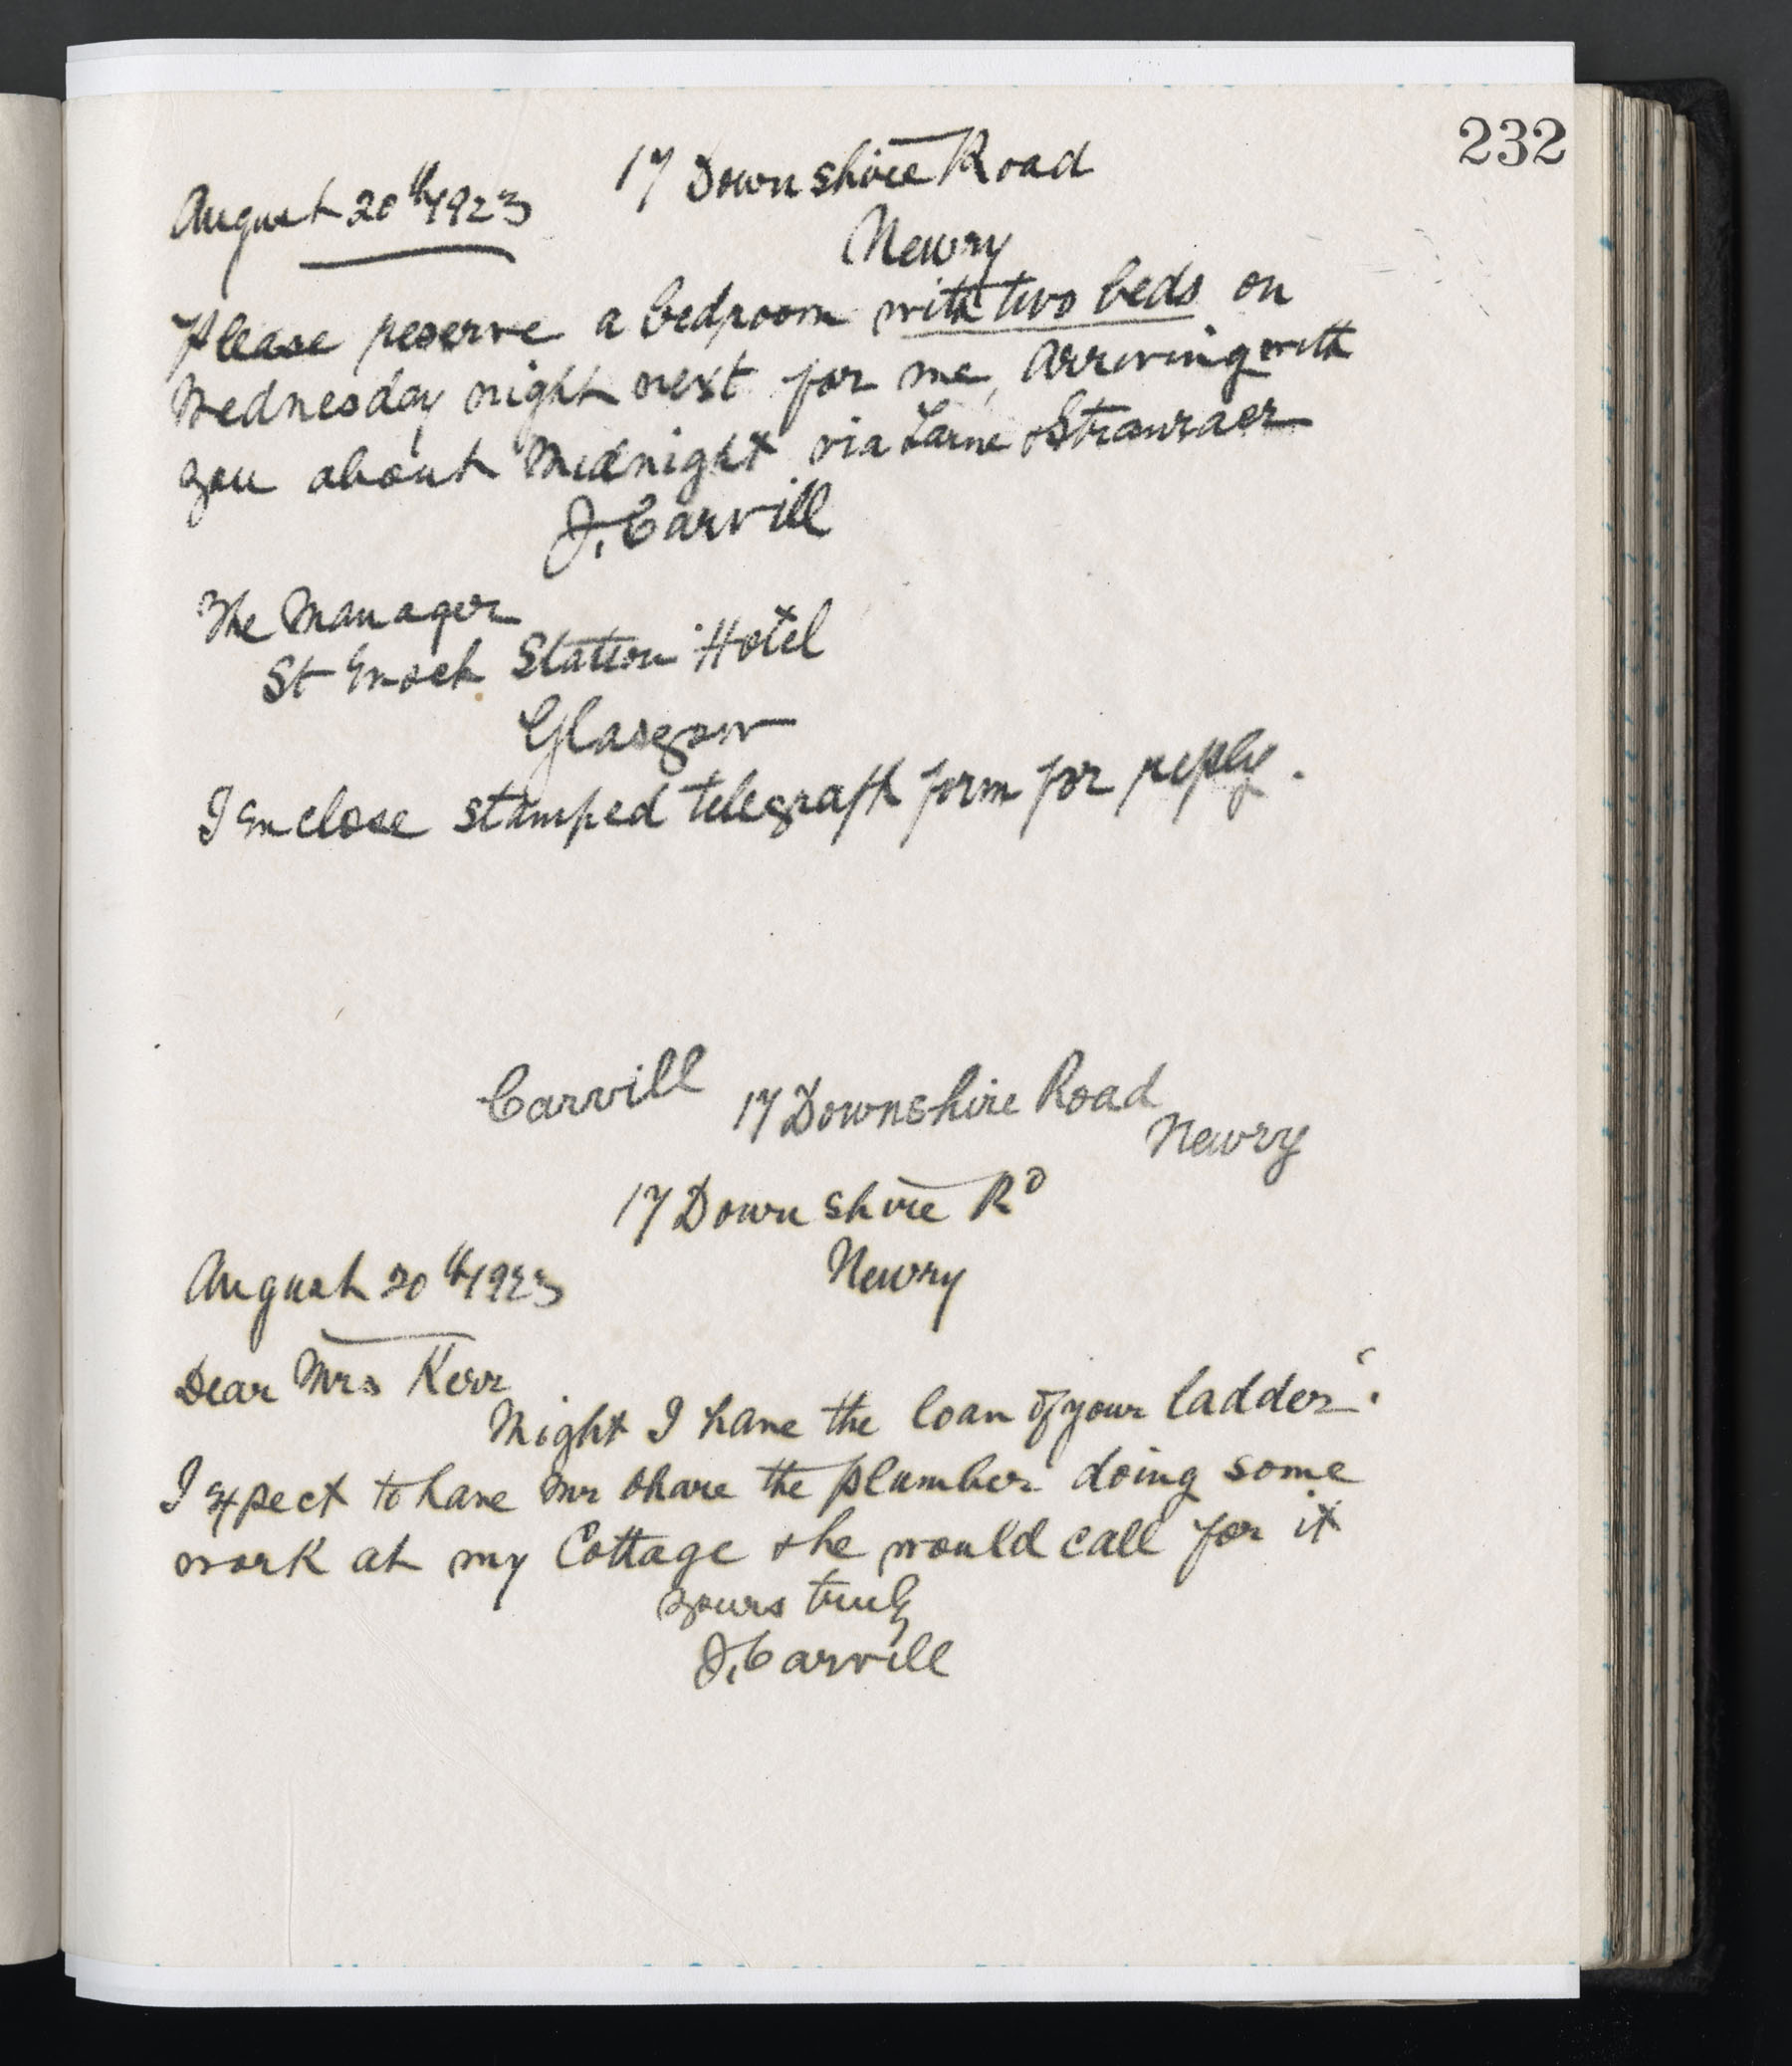 232
17 Downshire Road
August 20th 1923
Newry
Please reserve a bedroom with two beds on
Wednesday night next for me, arriving with
you about midnight via Larne & Stranraer
J. Carvill
The Manager
St Enoch Station Hotel
Glasgow
I enclose stamped telegraph form for reply.
Carvill 17 Downshire Road
Newry
17 Downshire Rd
August 20th 1923 Newry
Dear Mrs Kerr
Might I have the loan of your ladder.
I expect to have Mr Ohare the plumber doing some
work at my Cottage & he would call for it
yours truly
J. Carvill